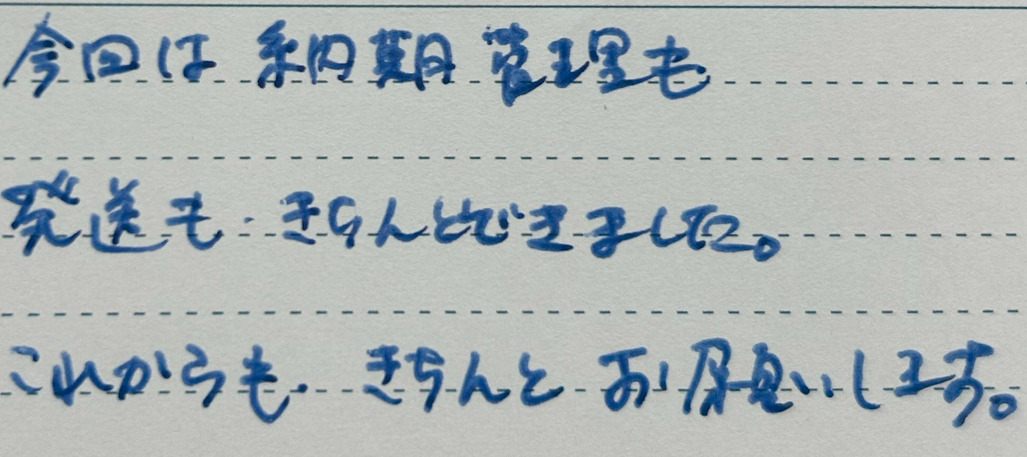 今回は納期管理も
発送もきちんとできました。
これからもきちんとお願いします。